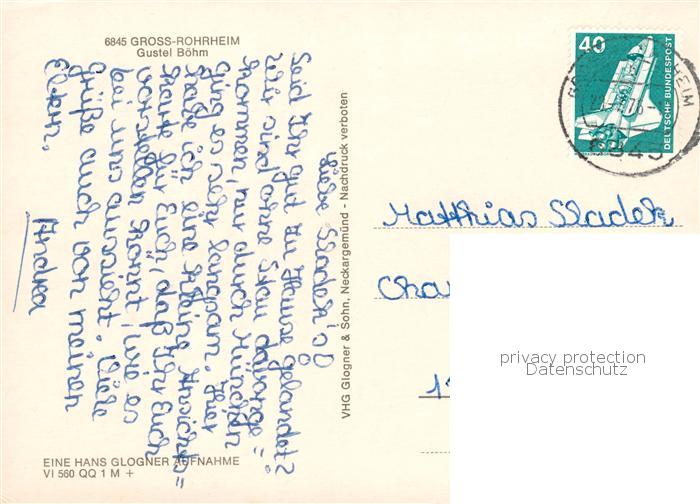 6845 GROSS-ROHRHEIM
Gustel Böhm
Liebe Sladek's!
Seid Ihr gut zu Hause gelandet?
Wir sind ohne Stau daheim
kommen, nur durch München
ging es sehr langsam. Hier
habe ich eine kleine Ansichts=
karte für Euch, daß Ihr Euch
vorstellen könnt, wie es
bei uns aussieht. Viele
Grüße auch von meinen
Eltern.
Andrea
EINE HANS GLOGNER AUFNAHME
VI 560 QQ 1 M +
VHG Glogner & Sohn, Neckargemünd - Nachdruck verboten
40
DEUTSCHE BUNDESPOST
6845
Matthias Sladek
privacy protection
Datenschutz